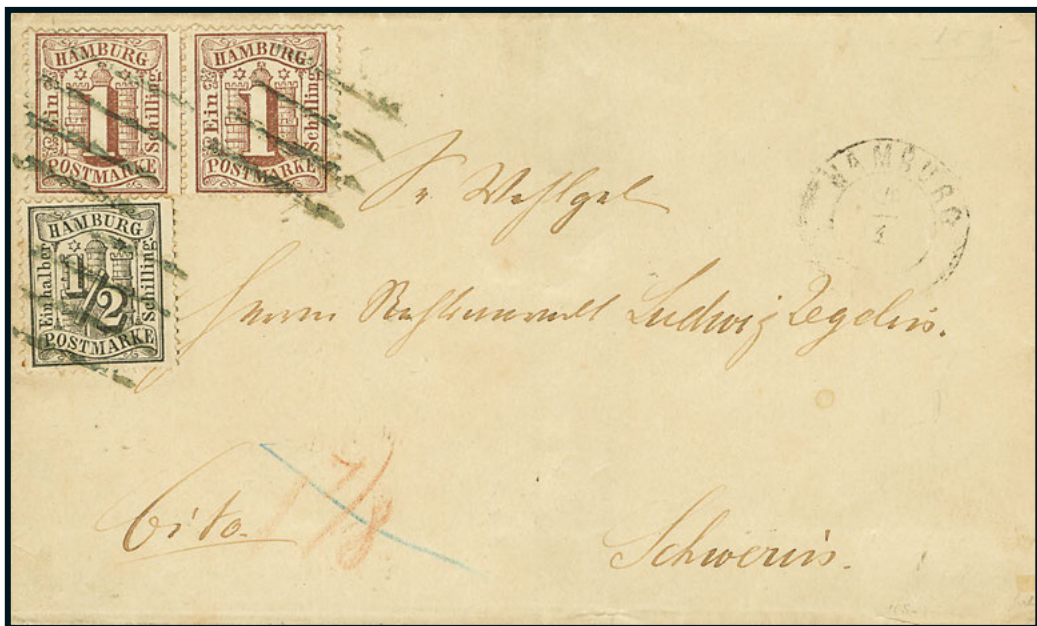 HAMBURG
Ein
1
Schilling
POSTMARKE
HAMBURG
Ein
1
Schilling
POSTMARKE
HAMBURG
Ein halber
1/2
Schilling
POSTMARKE
HAMBURG
Sr Wohlgeb
Herrn Rechtsanwalt Ludwig
Cito.
Schwerin.